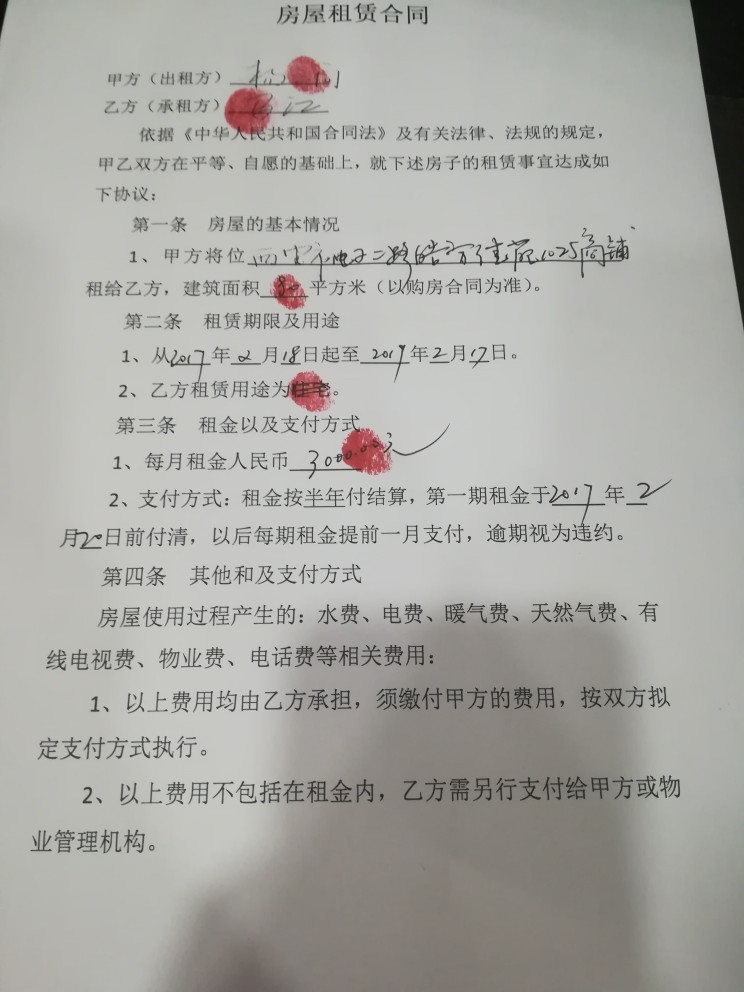 房屋租赁合同
甲方（出租方）
乙方（承租方）
依据《中华人民共和国合同法》及有关法律、法规的规定，
甲乙双方在平等、自愿的基础上，就下述房子的租赁事宜达成如
下协议：
第一条 房屋的基本情况
1、甲方将位 电子二路 1025商铺
租给乙方，建筑面积 平方米（以购房合同为准）。
第二条 租赁期限及用途
1、从2017年2月18日起至2019年2月17日。
2、乙方租赁用途为住宅。
第三条 租金以及支付方式
1、每月租金人民币3000.00元
2、支付方式：租金按半年付结算，第一期租金于2017年2
月20日前付清，以后每期租金提前一月支付，逾期视为违约。
第四条 其他和及支付方式
房屋使用过程产生的：水费、电费、暖气费、天然气费、有
线电视费、物业费、电话费等相关费用：
1、以上费用均由乙方承担，须缴付甲方的费用，按双方拟
定支付方式执行。
2、以上费用不包括在租金内，乙方需另行支付给甲方或物
业管理机构。